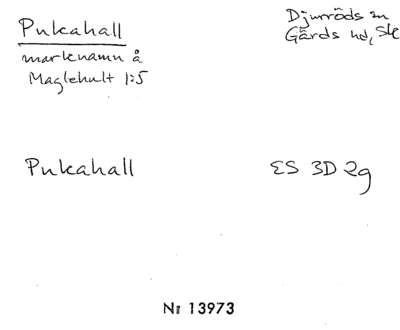 Pukahall
marknamn å
Maglehult 1:5
Djurröds sn
Gärds hd, Sk
Pukahall
ES 3D 2g
Nr 13973